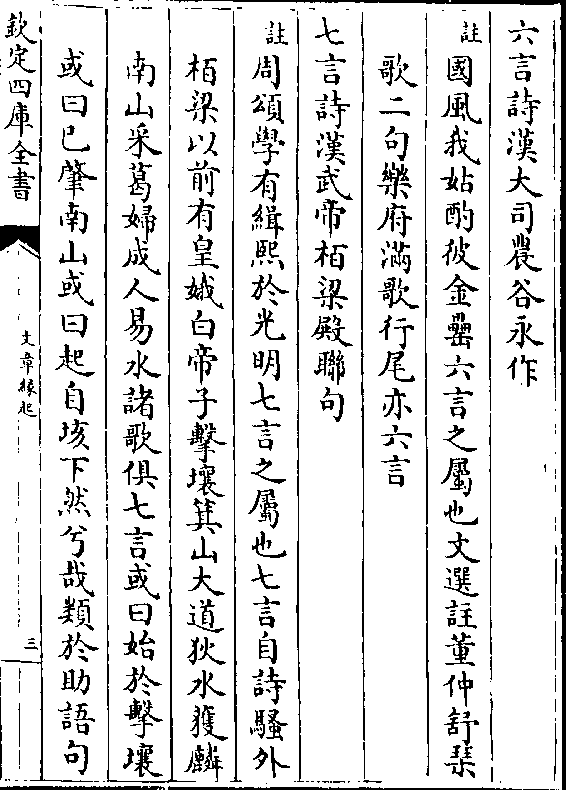 六言詩漢大司農谷永作
註國風我姑酌彼金罍六言之屬也文選註董仲舒琴
歌二句樂府滿歌行尾亦六言
七言詩漢武帝栢梁殿聯句
註周頌學有緝熙於光明七言之屬也七言自詩騷外
栢梁以前有皇娥白帝子擊壤箕山大道狄水獲麟
南山采葛婦成人易水諸歌俱七言或曰始於擊壤
或曰已肇南山或曰起自垓下然兮哉類於助語句
欽定四庫全書
文章緣起
三